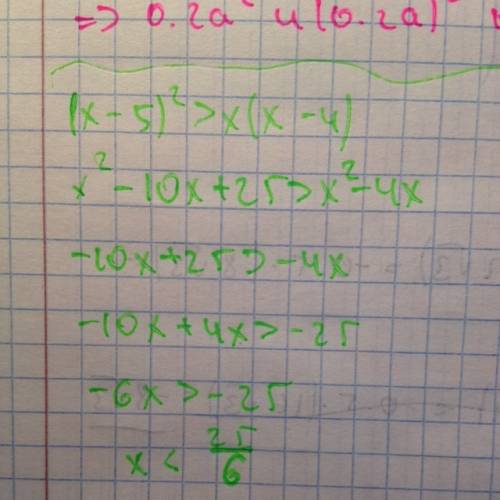 => 0.2a и (0.2a)
(x - 5)² > x(x - 4)
x² - 10x + 25 > x² - 4x
-10x + 25 > -4x
-10x + 4x > -25
-6x > -25
x < 25/6